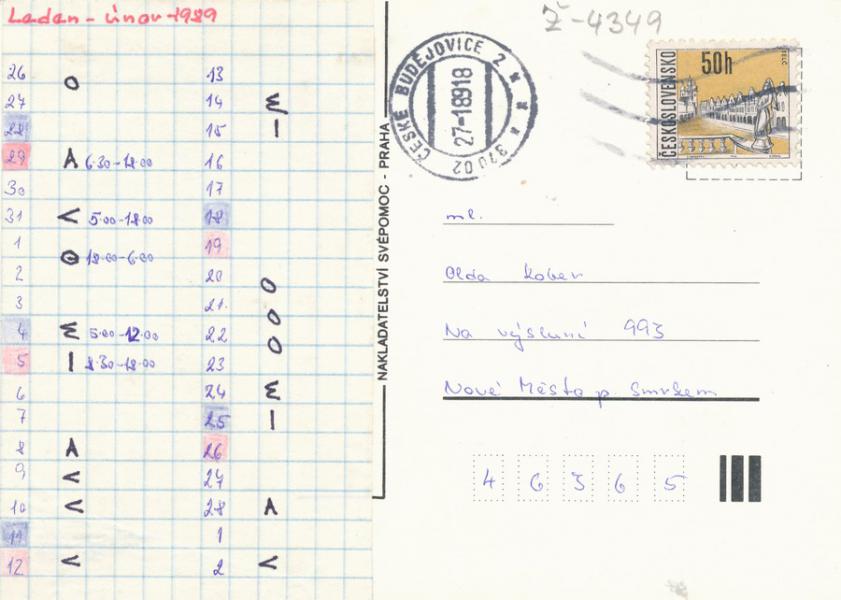 Leden - únor 1989
26 O 13
27 14 Σ
28 15 I
29 A 6.30-18.00 16
30 17
31 < 5.00-18.00 18
1 18.00-6.00 19
2 20 O
3 21. O
4 Σ 5.00-12.00 22 O
5 I 8.30-18.00 23
6 24 Σ
7 25 I
8 A 26
9 < 27
10 < 28 A
11 1
12 < 2 <
NAKLADATELSTVÍ SVÉPOMOC - PRAHA
Ž-4349
ČESKÉ BUDĚJOVICE 2
27-1 89 18
370 02
50 h
ČESKOSLOVENSKO
TELČ
ml.
Olda Kober
Na výsluní 993
Nové Město p Smrkem
46365